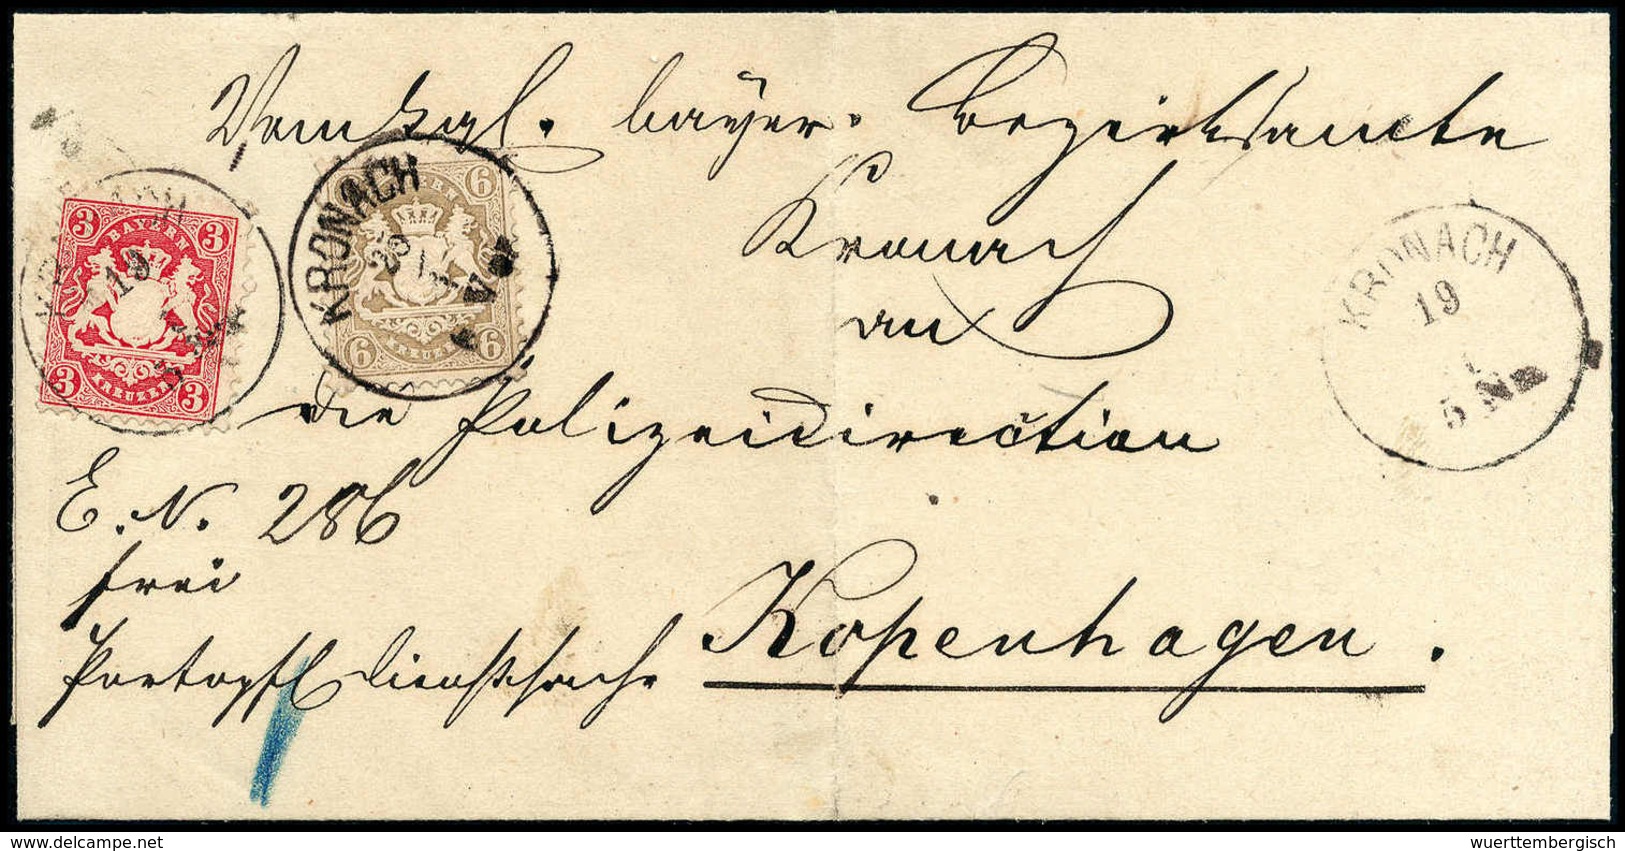 Vom kgl. bayer. Bezirksamte
Kronach
an
die Polizeidirection
Kopenhagen.
E. N. 286
frei
Portopfl Dienstsache
3 3
BAYERN
3 KREUZER 3
KRONACH
19
5
6
BAYERN
6 KREUZER 6
KRONACH
25
KRONACH
19
5 Nm
delcampe.net
wuerttembergisch